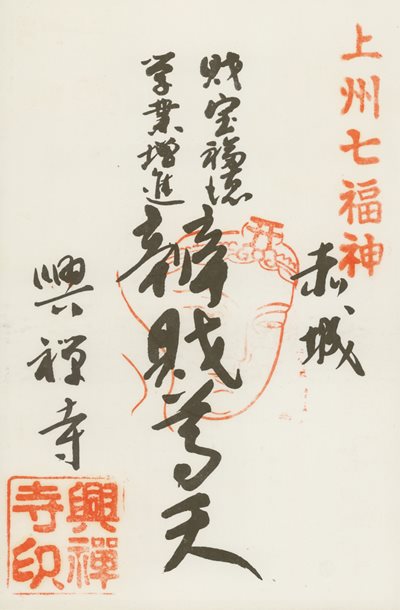 上州七福神
赤城
財宝福徳
学業増進
辨財尊天
興禅寺
興禪
寺印